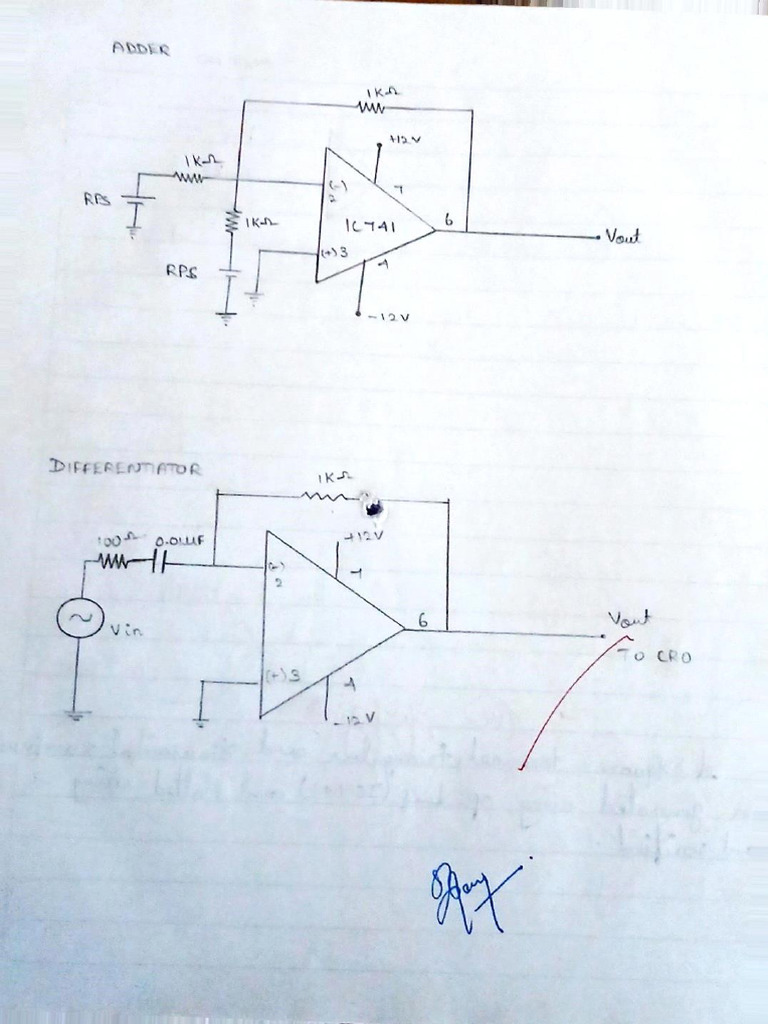 ADDER
1KΩ
+12V
1KΩ
(-)
7
2
RPS
1KΩ
IC741
6
Vout
(+)3
RPS
4
-12V
DIFFERENTIATOR
1KΩ
100Ω
0.01μF
+12V
(-)
7
2
6
Vout
Vin
TO CRO
(+)3
4
-12V